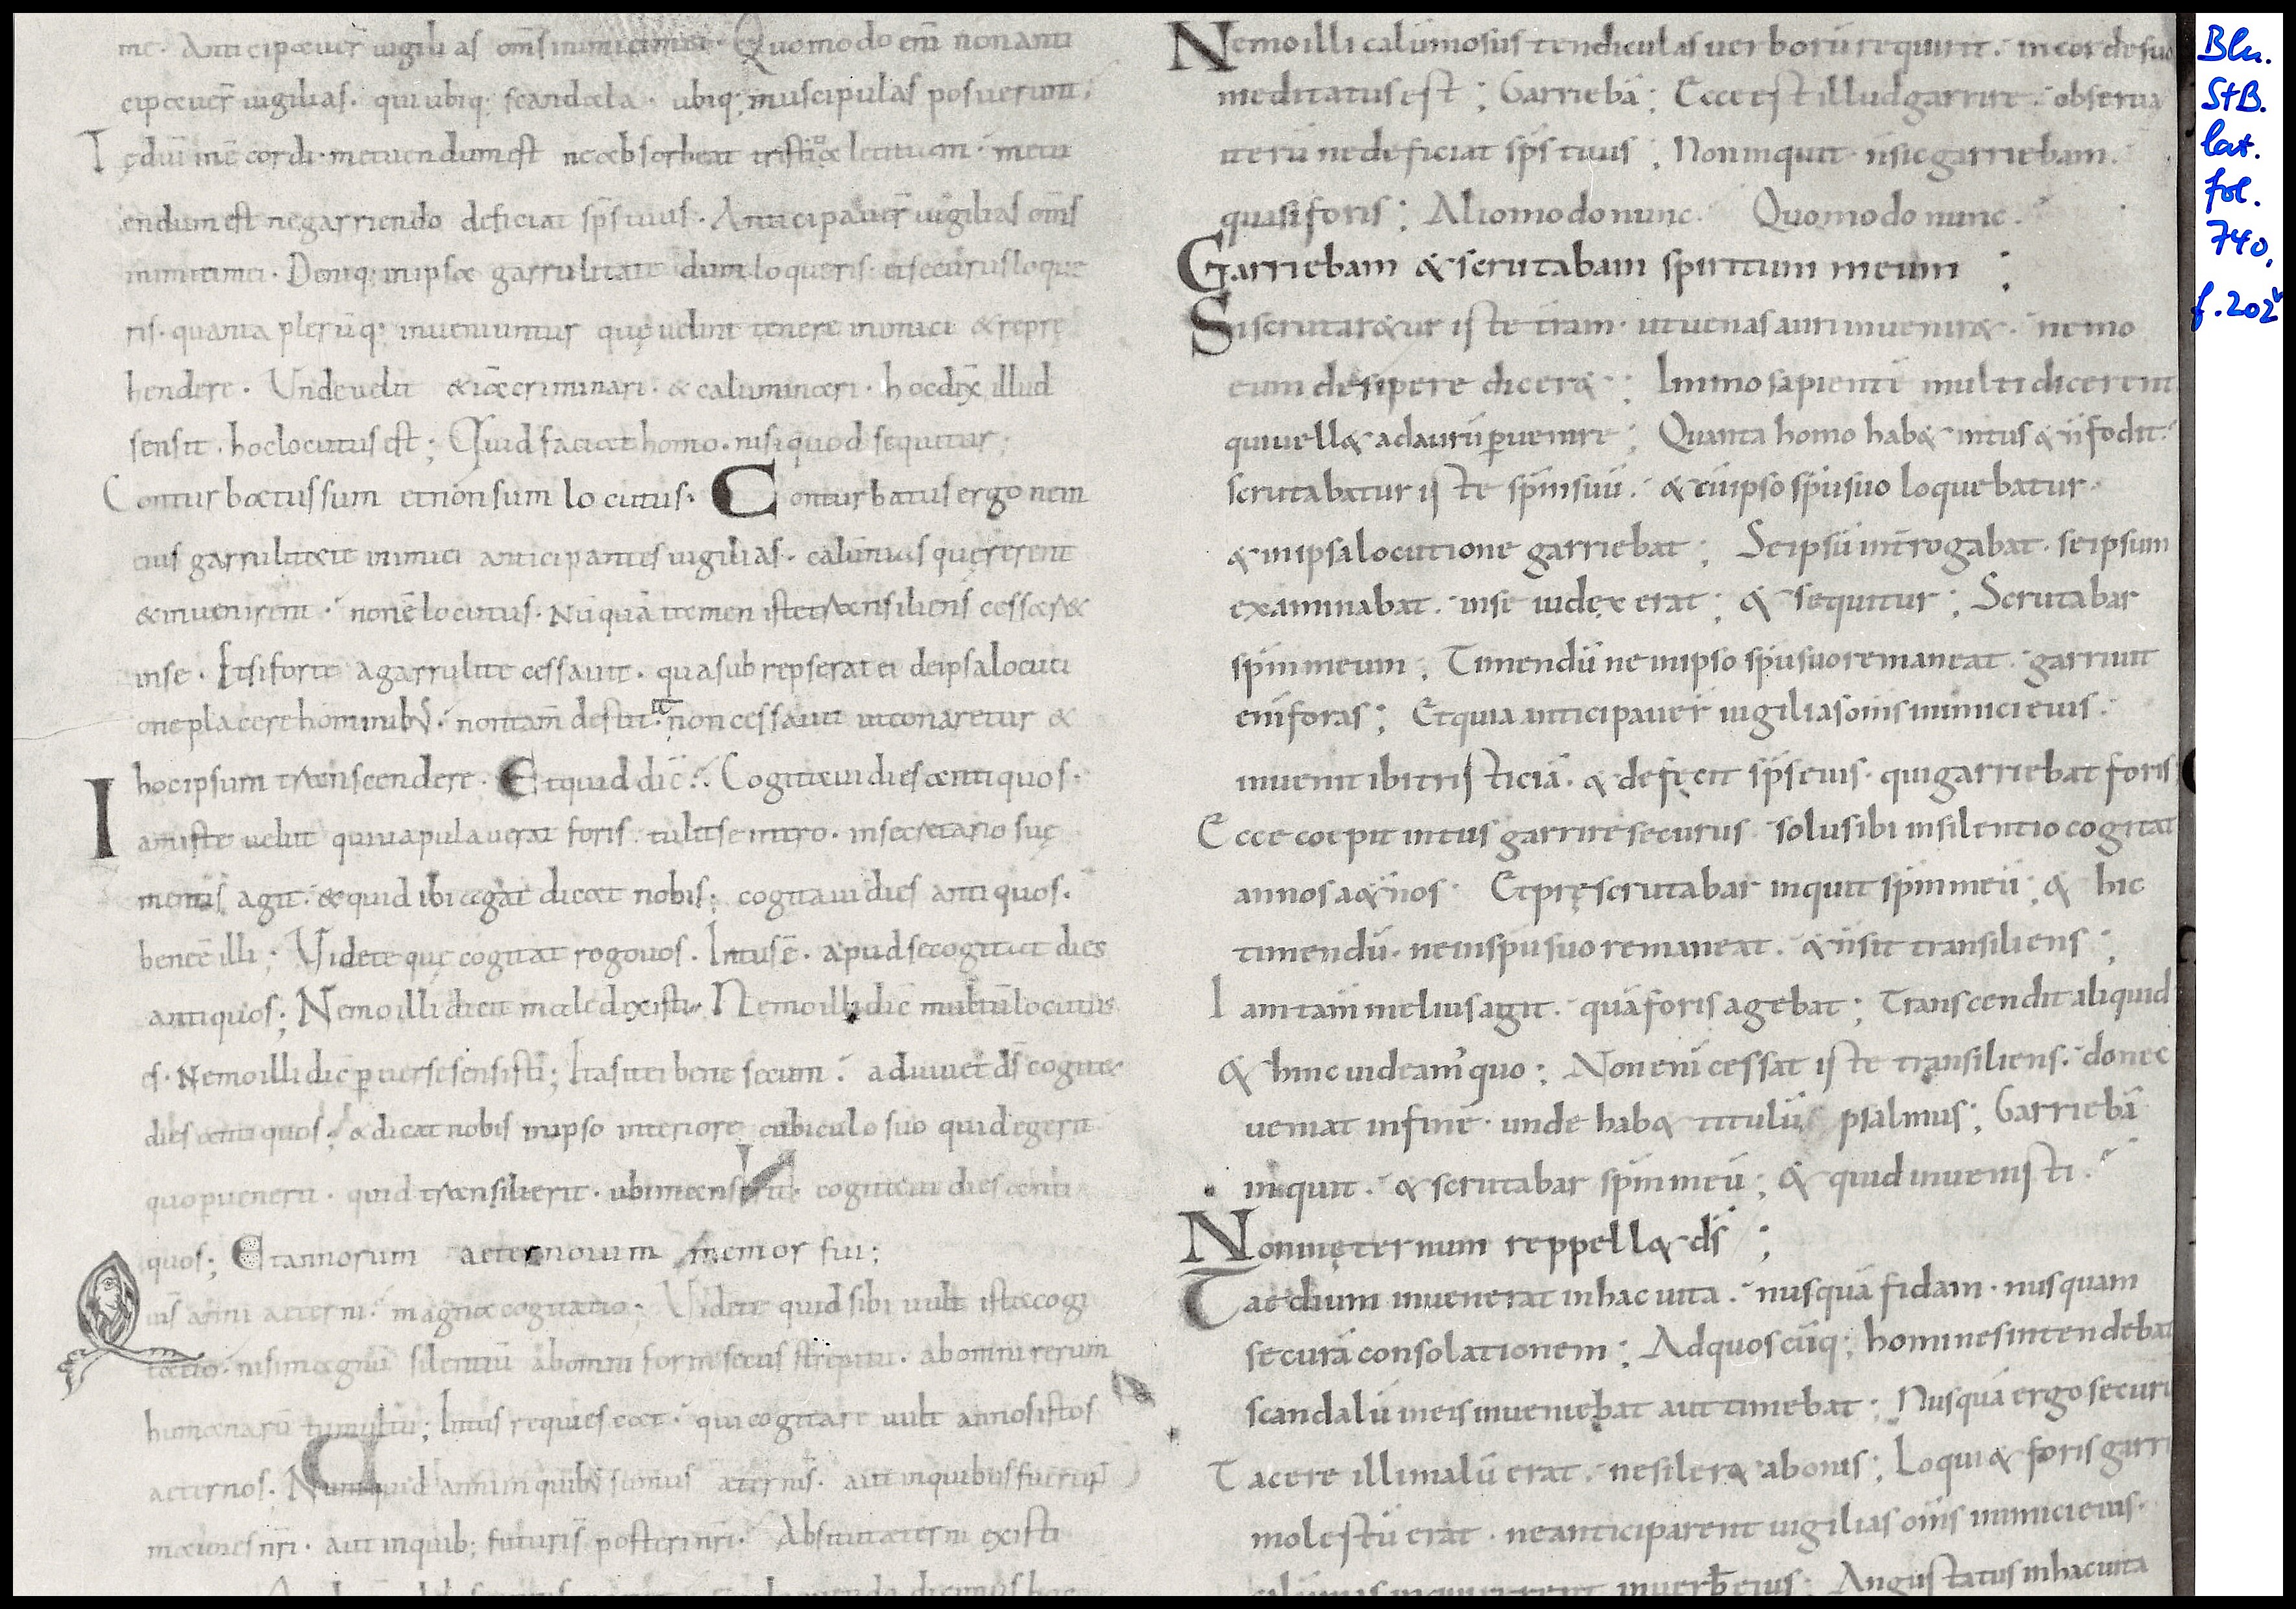 me. Anticipauer̄ uigilias om̄s inimici mei. Quomodo enī non anti
cipauer̄ uigilias. qui ubiq; scandala. ubiq; muscipulas posuerunt;
Tędiū inē cordi. metuendum est ne absorbeat tristitia letitiam. metu
endum est ne garriendo deficiat sp̄s tuus. Anticipauer̄ uigilias om̄s
inimici mei. Deniq; in ipsa garrulitate dum loqueris. et securus loque
ris. quanta plerūq; inueniuntur quę uelint tenere inimici & repre
hendere. Unde uelit & iā criminari. & caluminari. hoc dix̄ illud
sensit. hoc locutus est; Quid faciat homo. nisi quod sequitur;
Conturbatus sum et non sum locutus. Conturbatus ergo ne in
eius garrulitate inimici anticipantes uigilias. calūnias quęrerent
& inuenirent. non ē locutus. Nūquā tamen iste transiliens cessar&
in se. Et si forte a garrulite cessauit. qua subrepserat ei de ipsa locuti
one placere hominib;. non tam̄ destitit. non cessauit ut conaretur &
hoc ipsum transcendere. Et quid dic̄. Cogitaui dies antiquos.
Iam iste uelut qui uapulauerat foris. tulit se intro. in secretario suę
mentis agit. & quid ibi agat dicat nobis; cogitaui dies antiquos.
bene ē illi; Videte quę cogitat rogo uos. Intus ē. apud se cogitat dies
antiquos; Nemo illi dicit male dixisti. Nemo illi dic̄ multū locutus
es. Nemo illi dic̄ puerse sensisti; Ita sit ei bene secum. adiuuet d̄s cogitet
dies antiquos. & dicat nobis in ipso interiore cubiculo suo quid egerit
quo puenerit. quid transilierit. ubi manserit. cogitaui dies anti
quos; Et annorum aeternorum memor fui;
Qui s̄ anni aeterni. magna cogitatio; Videte quid sibi uult ista cogi
tatio. nisi magnū silentiū ab omni forinsecus strepitu. ab omni rerum
humanarū tumultu; Intus requiescat. qui cogitare uult annos istos
aeternos. Numquid anni in quib; sumus aeterni s̄. aut in quibus fuerunt
maiores nr̄i. aut in quib; futuri s̄ posteri nr̄i. Absit ut aeterni existi
Nemo illi calūniosus tendiculas uerborū requirit. in corde suo
meditatus est; Garriebā; Ecce est illud garrire. obserua
iterū ne deficiat sp̄s tuus; Non inquit n̄ sic garriebam.
quasi foris; Alio modo nunc. Quomodo nunc.
Garriebam & scrutabam spiritum meum;
Si scrutar&ur iste trām. ut uenas auri inuenir&. nemo
eum desipere dicer&; Immo sapientē multi dicerent
qui uell& ad aurū puenire; Quanta homo hab& intus & n̄ fodit.
scrutabatur iste sp̄m suū. & cū ipso sp̄u suo loquebatur.
& in ipsa locutione garriebat; Se ipsū inrogabat. se ipsum
examinabat. in se iudex erat; & sequitur; Scrutabar
sp̄m meum; Timendū ne in ipso sp̄u suo remaneat. garriuit
enī foras; Et quia anticipauer̄ uigilias om̄s inimici eius.
inuenit ibi tristiciā. & defecit sp̄s eius. qui garriebat foris
Ecce coepit intus garrire securus solus ibi in silentio cogitat
annos a&nos. Et pręscrutabar inquit sp̄m meū; & hic
timendū. ne in sp̄u suo remaneat. & n̄ sit transiliens;
Iam tam̄ melius agit. quā foris agebat; Transcendit aliquid
& hinc uideam' quo; Non enī cessat iste transiliens. donec
ueniat in finē. unde hab& titulū psalmus; Garriebā
inquit. & scrutabar sp̄m meū; & quid inuenisti.
Non in ęternum reppell& d̄s;
Taedium inuenerat in hac uita. nusquā fidam. nusquam
securā consolationem; Ad quoscūq; homines intendebat
scandalū in eis inueniebat aut timebat; Nusquā ergo securi
Tacere illi malū erat. ne siler& a bonis; Loqui & foris garri
molestū erat. ne anticiparent uigilias om̄s inimici eius.
calūnias inquirerent in uerb̄ eius; Angustatus in hac uita
Bln.
StB.
lat.
fol.
740,
f. 202v